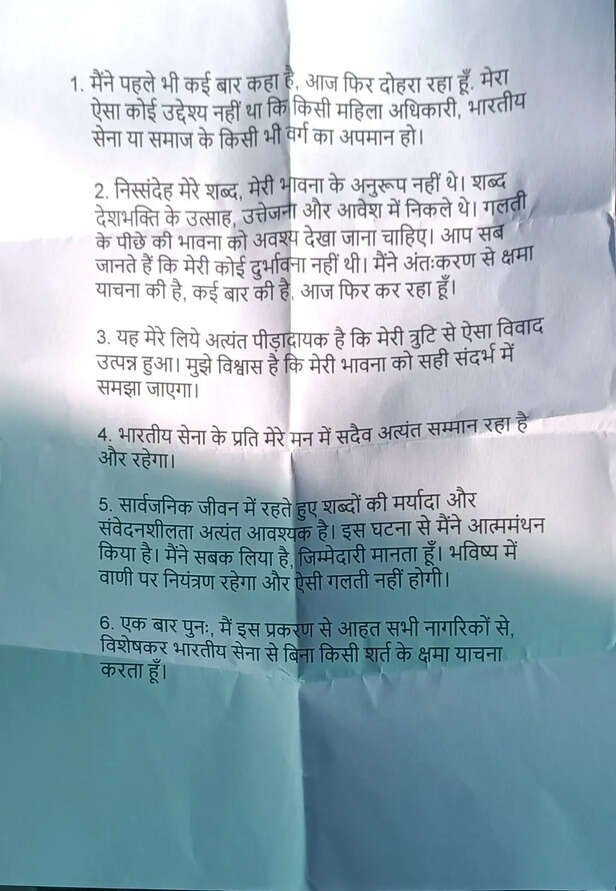 1. मैंने पहले भी कई बार कहा है, आज फिर दोहरा रहा हूँ. मेरा
ऐसा कोई उद्देश्य नहीं था कि किसी महिला अधिकारी, भारतीय
सेना या समाज के किसी भी वर्ग का अपमान हो।
2. निस्संदेह मेरे शब्द, मेरी भावना के अनुरूप नहीं थे। शब्द
देशभक्ति के उत्साह, उत्तेजना और आवेश में निकले थे। गलती
के पीछे की भावना को अवश्य देखा जाना चाहिए। आप सब
जानते हैं कि मेरी कोई दुर्भावना नहीं थी। मैंने अंतःकरण से क्षमा
याचना की है, कई बार की है, आज फिर कर रहा हूँ।
3. यह मेरे लिये अत्यंत पीड़ादायक है कि मेरी त्रुटि से ऐसा विवाद
उत्पन्न हुआ। मुझे विश्वास है कि मेरी भावना को सही संदर्भ में
समझा जाएगा।
4. भारतीय सेना के प्रति मेरे मन में सदैव अत्यंत सम्मान रहा है
और रहेगा।
5. सार्वजनिक जीवन में रहते हुए शब्दों की मर्यादा और
संवेदनशीलता अत्यंत आवश्यक है। इस घटना से मैंने आत्ममंथन
किया है। मैंने सबक लिया है, जिम्मेदारी मानता हूँ। भविष्य में
वाणी पर नियंत्रण रहेगा और ऐसी गलती नहीं होगी।
6. एक बार पुनः, मैं इस प्रकरण से आहत सभी नागरिकों से,
विशेषकर भारतीय सेना से बिना किसी शर्त के क्षमा याचना
करता हूँ।